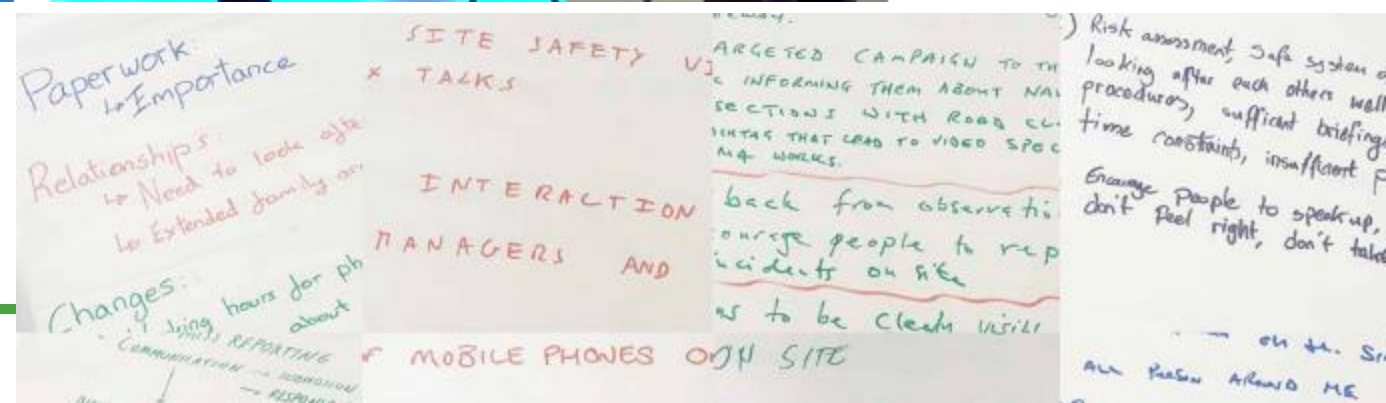 Paperwork:
↳ Importance
Relationships:
↳ Need to look afte
↳ Extended family an
Changes:
hours for ph
about
REPORTING
COMMUNICATION →
SITE SAFETY VI
× TALKS
INTERACTION
MANAGERS AND
ARGETED CAMPAIGN TO TH
INFORMING THEM ABOUT NAV
SECTIONS WITH ROAD CL
THAT LEAD TO VIDEO SPEC
WORKS.
back from observatio
ourage people to rep
incidents on site
to be Clearly visibl
MOBILE PHONES O
ON SITE
) Risk assessment, Safe system o
looking after each others well
procedures, sufficient briefings
time constraints, insufficient p
Encourage people to speak up,
don't feel right, don't take
on the Si
ALL PERSON AROUND ME